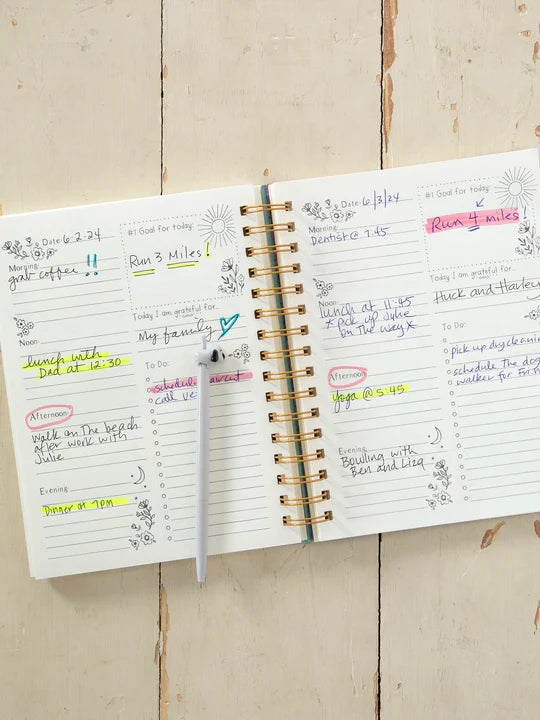 Date: 6-2-24
Morning:
grab coffee !!
Noon:
lunch with
Dad at 12:30
Afternoon:
walk on the beach
after work with
Julie
Evening:
Dinner at 7pm
#1 Goal for today:
Run 3 Miles!
Today I am grateful for:
My family
To Do:
schedule haircut
call
Date: 6/3/24
Morning:
Dentist @ 7:45
Noon:
lunch at 11:45
*pick up Julie
on the way*
Afternoon:
yoga @ 5:45
Evening:
Bowling with
Ben and Liza
#1 Goal for today:
Run 4 miles!
Today I am grateful for:
Huck and Harley
To Do:
pick up dry cleaning
schedule the dog
walker for Fri